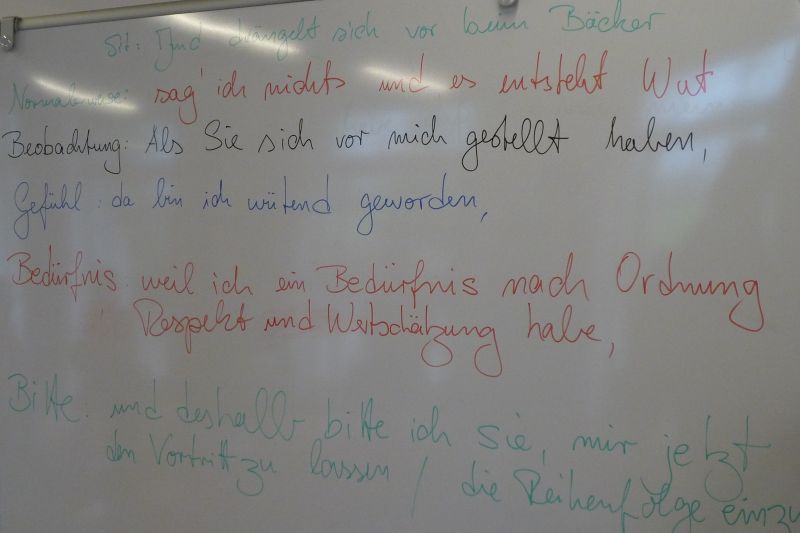 Sit: Jmd drängelt sich vor beim Bäcker
Normalerweise: sag' ich nichts und es entsteht Wut
Beobachtung: Als Sie sich vor mich gestellt haben,
Gefühl: da bin ich wütend geworden,
Bedürfnis: weil ich ein Bedürfnis nach Ordnung
Respekt und Wertschätzung habe,
Bitte: und deshalb bitte ich Sie, mir jetzt
den Vortritt zu lassen / die Reihenfolge einzu